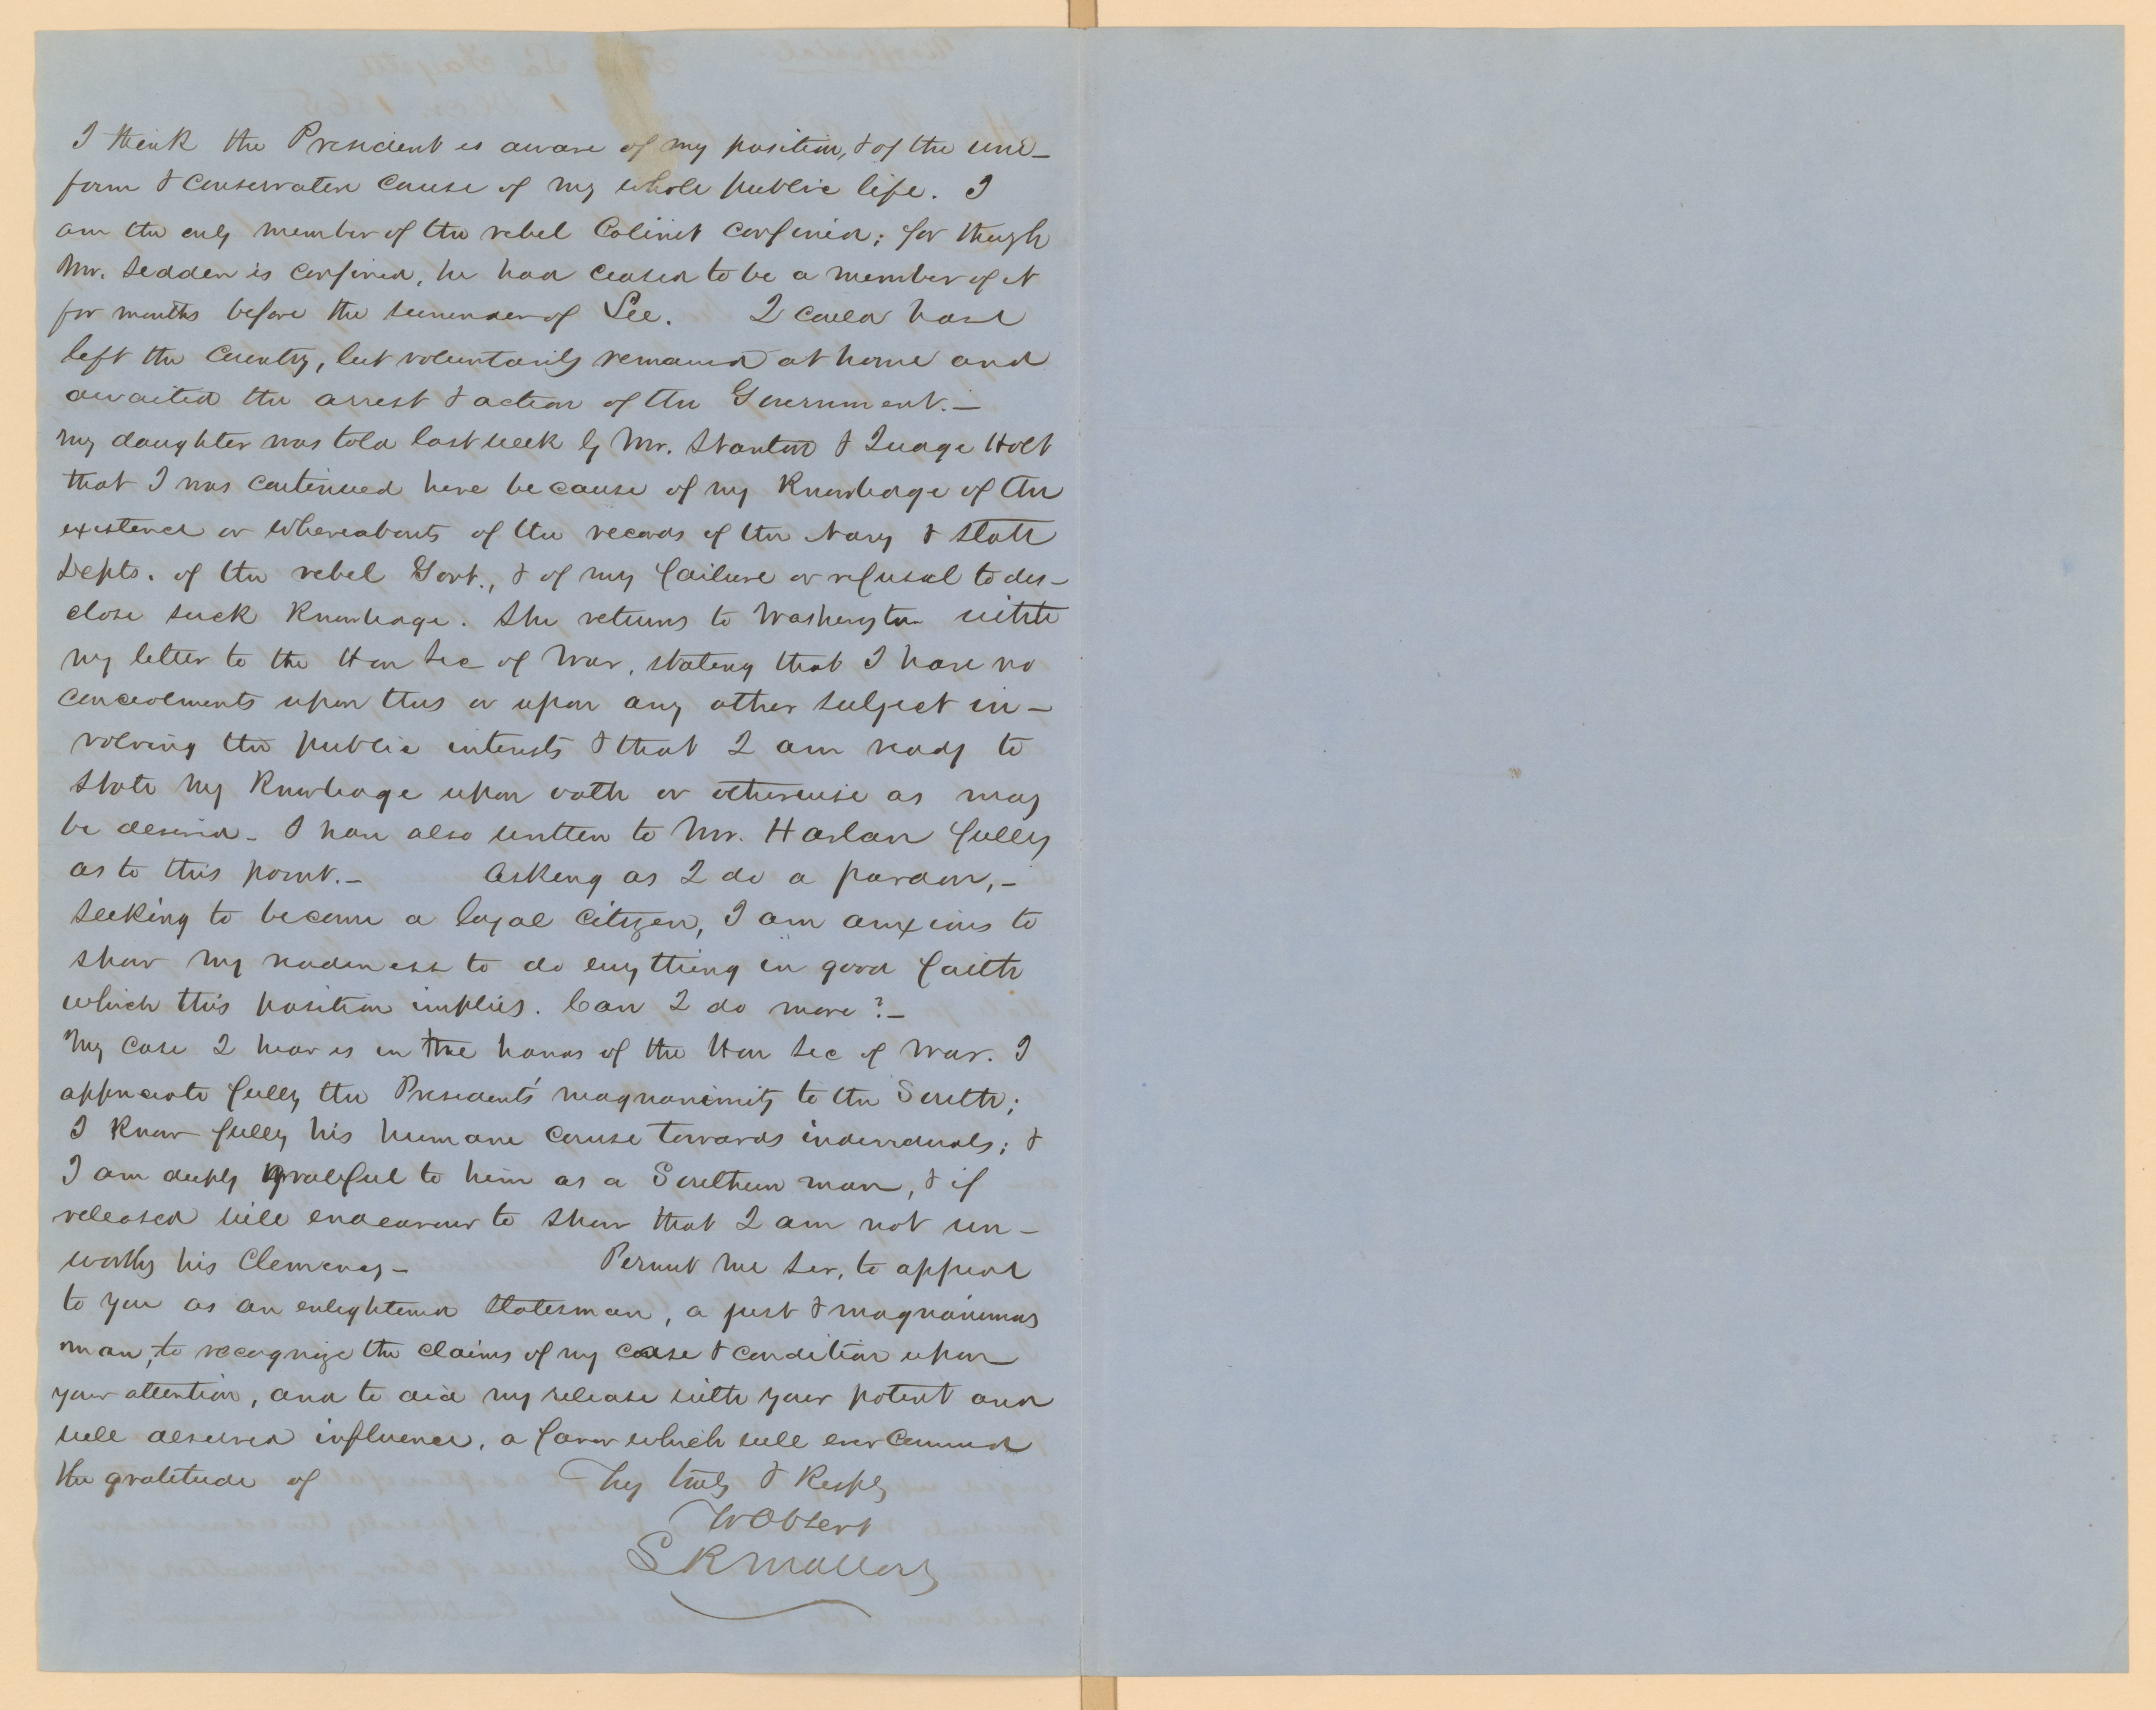 I think the President is aware of my position, & of the uni-
form & conservative cause of my whole public life. I
am the only member of the rebel Cabinet confined; for though
Mr. Seddon is confined, he had ceased to be a member of it
for months before the surrender of Lee. I could have
left the Country, but voluntarily remained at home and
awaited the arrest & action of the Government. —
My daughter was told last week by Mr. Stanton & Judge Holt
that I was continued here because of my knowledge of the
existence or whereabouts of the records of the Navy & State
Depts. of the rebel Govt., & of my failure or refusal to dis-
close such knowledge. She returns to Washington with
my letter to the Hon Sec of War, stating that I have no
concealments upon this or upon any other subject in-
volving the public interests & that I am ready to
state my knowledge upon oath or otherwise as may
be desired - I have also written to Mr. Harlan fully
as to this point. — Asking as I do a pardon, —
seeking to become a loyal citizen, I am anxious to
show my readiness to do everything in good faith
which this position implies. Can I do more? —
My case I hear is in the hands of the Hon Sec of War. I
appreciate fully the President's magnanimity to the South;
I know fully his humane course towards individuals; &
I am deeply grateful to him as a Southern man, & if
released will endeavour to show that I am not un-
worthy his Clemency — Permit me Sir, to appeal
to you as an enlightened statesman, a just & magnanimous
man, to recognize the claims of my case & condition upon
your attention, and to aid my release with your potent and
well deserved influence, a favor which will ever command
the gratitude of Very truly & Respy
Yr Ob Servt
S R Mallory